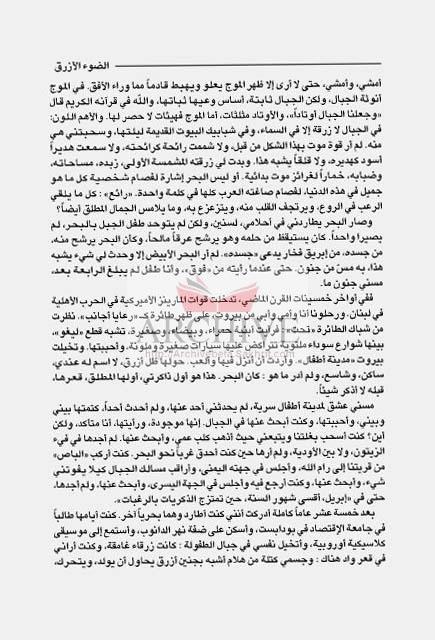 الضوء الأزرق
أمشي، وأمشي، حتى لا أرى إلا ظهر الموج يعلو ويهبط قادماً مما وراء الأفق. في الموج
أنوثة الجبال، ولكن الجبال ثابتة، أساس وعيها ثباتها، والله في قرآنه الكريم قال
«وجعلنا الجبال أوتاداً»، والأوتاد مثلثات، أما الموج فهيئات لا حصر لها. والأهم اللون:
في الجبال لا زرقة إلا في السماء، وفي شبابيك البيوت القديمة ليلتها، وسحبتني هي
منه. لم أر قوة موت بهذا الشكل من قبل، ولا شممت رائحة كرائحته، ولا سمعت هديراً
أسود كهديره، ولا قلقاً يشبه هذا. وبدت لي زرقته المشمسة الأولى، زبده، مساحاته،
وضبابه، خماراً لغرائز موت بدائية. أو ليس البحر إشارة لفصام شخصية كل ما هو
جميل في هذه الدنيا، لفصام صاغته العرب كلها في كلمة واحدة. «رائع» : كل ما يلقي
الرعب في الروع، ويرتجف القلب منه، وينزعزع به، وما يلامس الجمال المطلق أيضاً؟
وصار البحر يطاردني في أحلامي، لسنين، ولكن لم يتوحد طفل الجبل بالبحر، لم
يصيرا واحداً. كان يستيقظ من حلمه وهو يرشح عرقاً مالحاً، وكأن البحر يرشح منه،
من جسده، من إبريق فخار يدعى «جسده». لم أر البحر الأبيض إلا وحدث لي شيء يشبه
هذا، به مسّ من جنون. حتى عندما رأيته من «فوق»، وأنا طفل لم يبلغ الرابعة بعد،
مسني جنون ما.
ففي أواخر خمسينات القرن الماضي، تدخلت قوات المارينز الأميركية في الحرب الأهلية
في لبنان. ورحلونا أنا وأمي وأبي من بيروت، على ظهر طائرة كـ «رعايا أجانب». نظرت
من شباك الطائرة «تحت»: فرأيت أبنية حمراء، وبيضاء، وصفراء، تشبه قطع «ليغو»،
بينها شوارع سوداء ملتوية تتراكض عليها سيارات صغيرة وملونة، وأحببتها. وتخيلت
بيروت «مدينة أطفال». وأردت أن أنزل فيها وألعب. حولها ظل أزرق، لا اسم له عندي،
ساكن، وشاسع، ولم أدر ما هو : كان البحر. هذا هو أول ذاكرتي، أولها المطلق، قعرها،
قبله لا أذكر شيئاً.
مسني عشق لمدينة أطفال سرية، لم يحدثني أحد عنها، ولم أحدث أحداً، كتمتها بيني
وبيني، وأحببتها، وكنت أبحث عنها في الجبال. إنها موجودة، ورأيتها، أنا متأكد، ولكن
أين؟ كنت أسحب بغلتنا ويتبعني حيث أذهب كلب عمي، وأبحث عنها. لم أجدها في فيء
الزيتون، ولا بين الأودية، ولم أرها حين كنت أحدق غرباً نحو البحر. كنت أركب «الباص»
من قريتنا إلى رام الله، وأجلس في جهته اليمنى، وأراقب مسالك الجبال كيلا يفوتني
شيء، وأبحث عنها، وكنت أرجع فيه وأجلس في الجهة اليسرى، وأبحث عنها، ولم أجدها،
حتى في «إبريل، أقسى شهور السنة، حين تمتزج الذكريات بالرغبات».
بعد خمسة عشر عاماً كاملة أدركت أنني كنت أطارد وهما بحرياً آخر. كنت أيامها طالباً
في جامعة الإقتصاد في بودابست، وأسكن على ضفة نهر الدانوب، وأستمع إلى موسيقى
كلاسيكية أوروبية، وأتخيل نفسي في جبال الطفولة : كانت زرقاء غامقة، وكنت أراني
في قعر واد هناك : وجسمي كتلة من هلام أشبه بجنين أزرق يحاول أن يولد، ويتحرك،
ARCHIVE
http://Archivebeta.Sakhrit.com